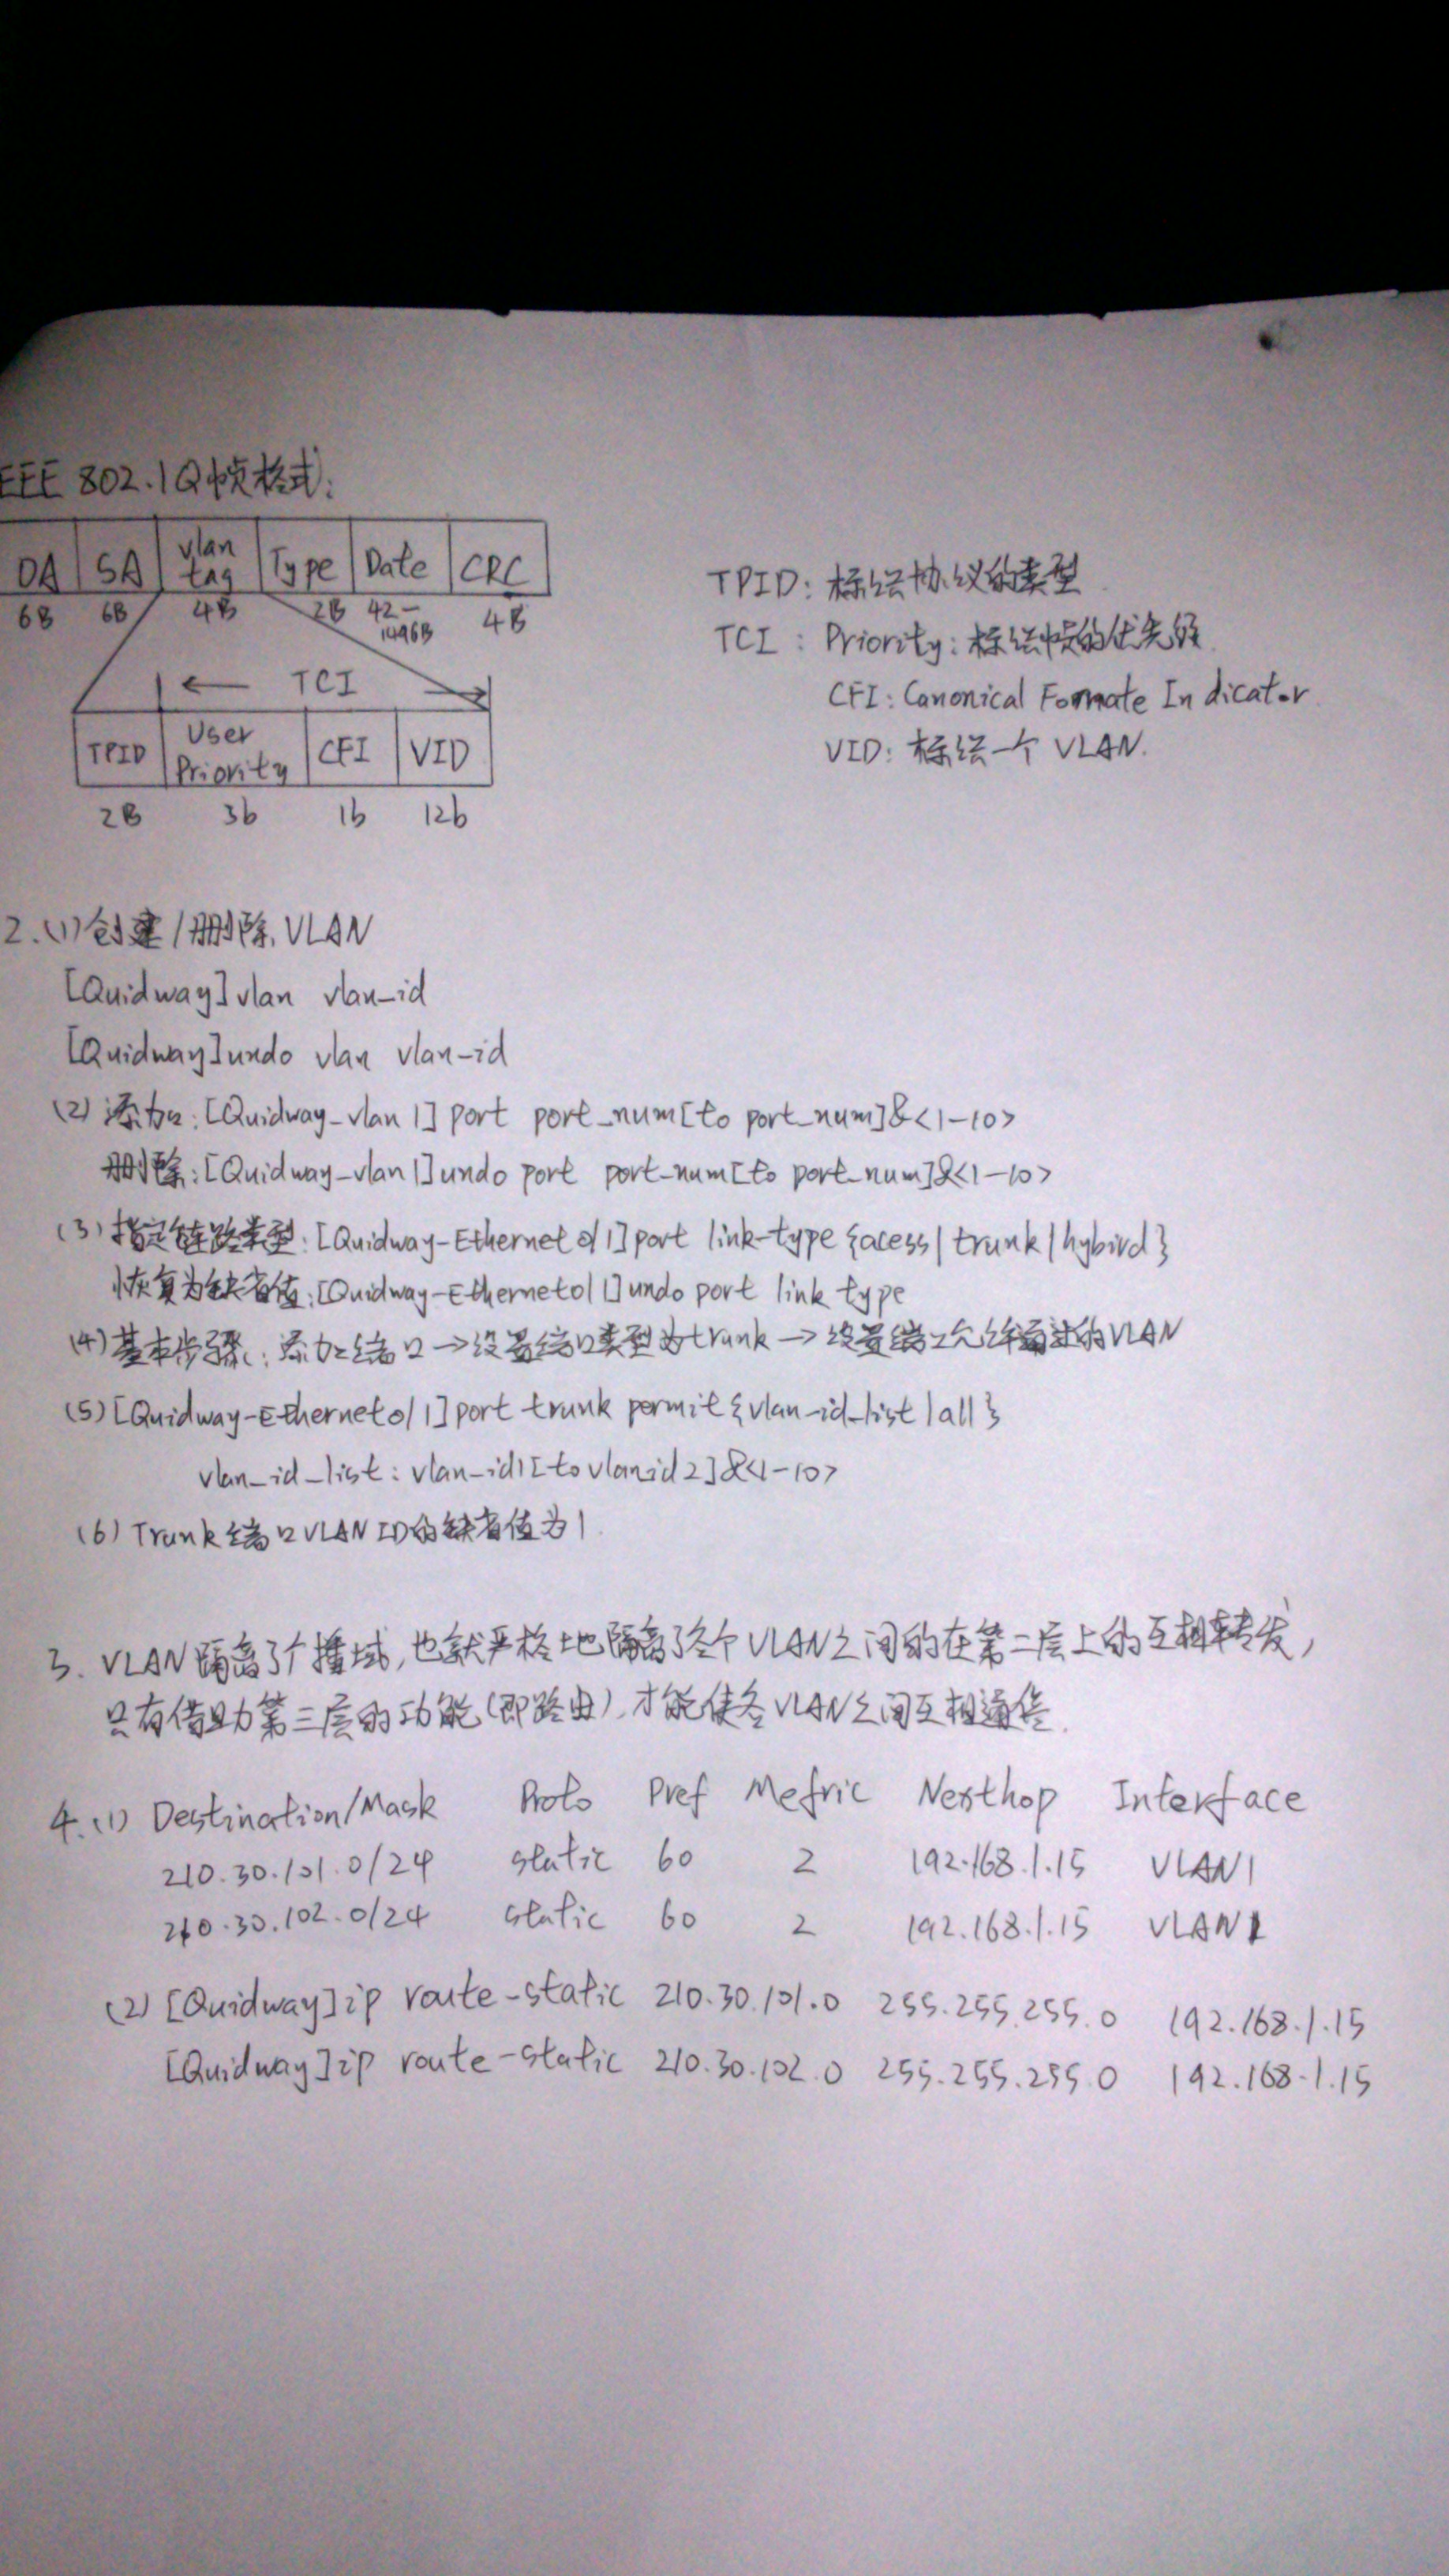 EEE 802.1Q帧格式:
DA SA vlan tag Type Date CRC
6B 6B 4B 2B 42-1496B 4B
← TCI →
TPID User Priority CFI VID
2B 3b 1b 12b
TPID: 标识协议的类型
TCI: Priority: 标识帧的优先级
CFI: Canonical Formate Indicator
VID: 标识一个 VLAN.
2. (1) 创建/删除 VLAN
[Quidway]vlan vlan-id
[Quidway]undo vlan vlan-id
(2) 添加: [Quidway-vlan1] port port_num[to port_num]&<1-10>
删除: [Quidway-vlan1]undo port port-num[to port_num]&<1-10>
(3) 指定链路类型: [Quidway-Ethernet0/1]port link-type {acess|trunk|hybird}
恢复为缺省值: [Quidway-Ethernet0/1]undo port link type
(4) 基本步骤: 添加端口→设置端口类型为trunk→设置端口允许通过的VLAN
(5) [Quidway-Ethernet0/1]port trunk permit {vlan-id-list|all}
vlan_id_list: vlan-id1[to vlanid2]&<1-10>
(6) Trunk端口VLAN ID的缺省值为1.
3. VLAN隔离了广播域,也就严格地隔离了各个VLAN之间的在第二层上的互相转发,
只有借助第三层的功能(即路由),才能使各VLAN之间互相通信.
4. (1) Destination/Mask Proto Pref Mefric Nexthop Interface
210.30.101.0/24 static 60 2 192.168.1.15 VLAN1
210.30.102.0/24 static 60 2 192.168.1.15 VLAN1
(2) [Quidway]ip route-static 210.30.101.0 255.255.255.0 192.168.1.15
[Quidway]ip route-static 210.30.102.0 255.255.255.0 192.168.1.15